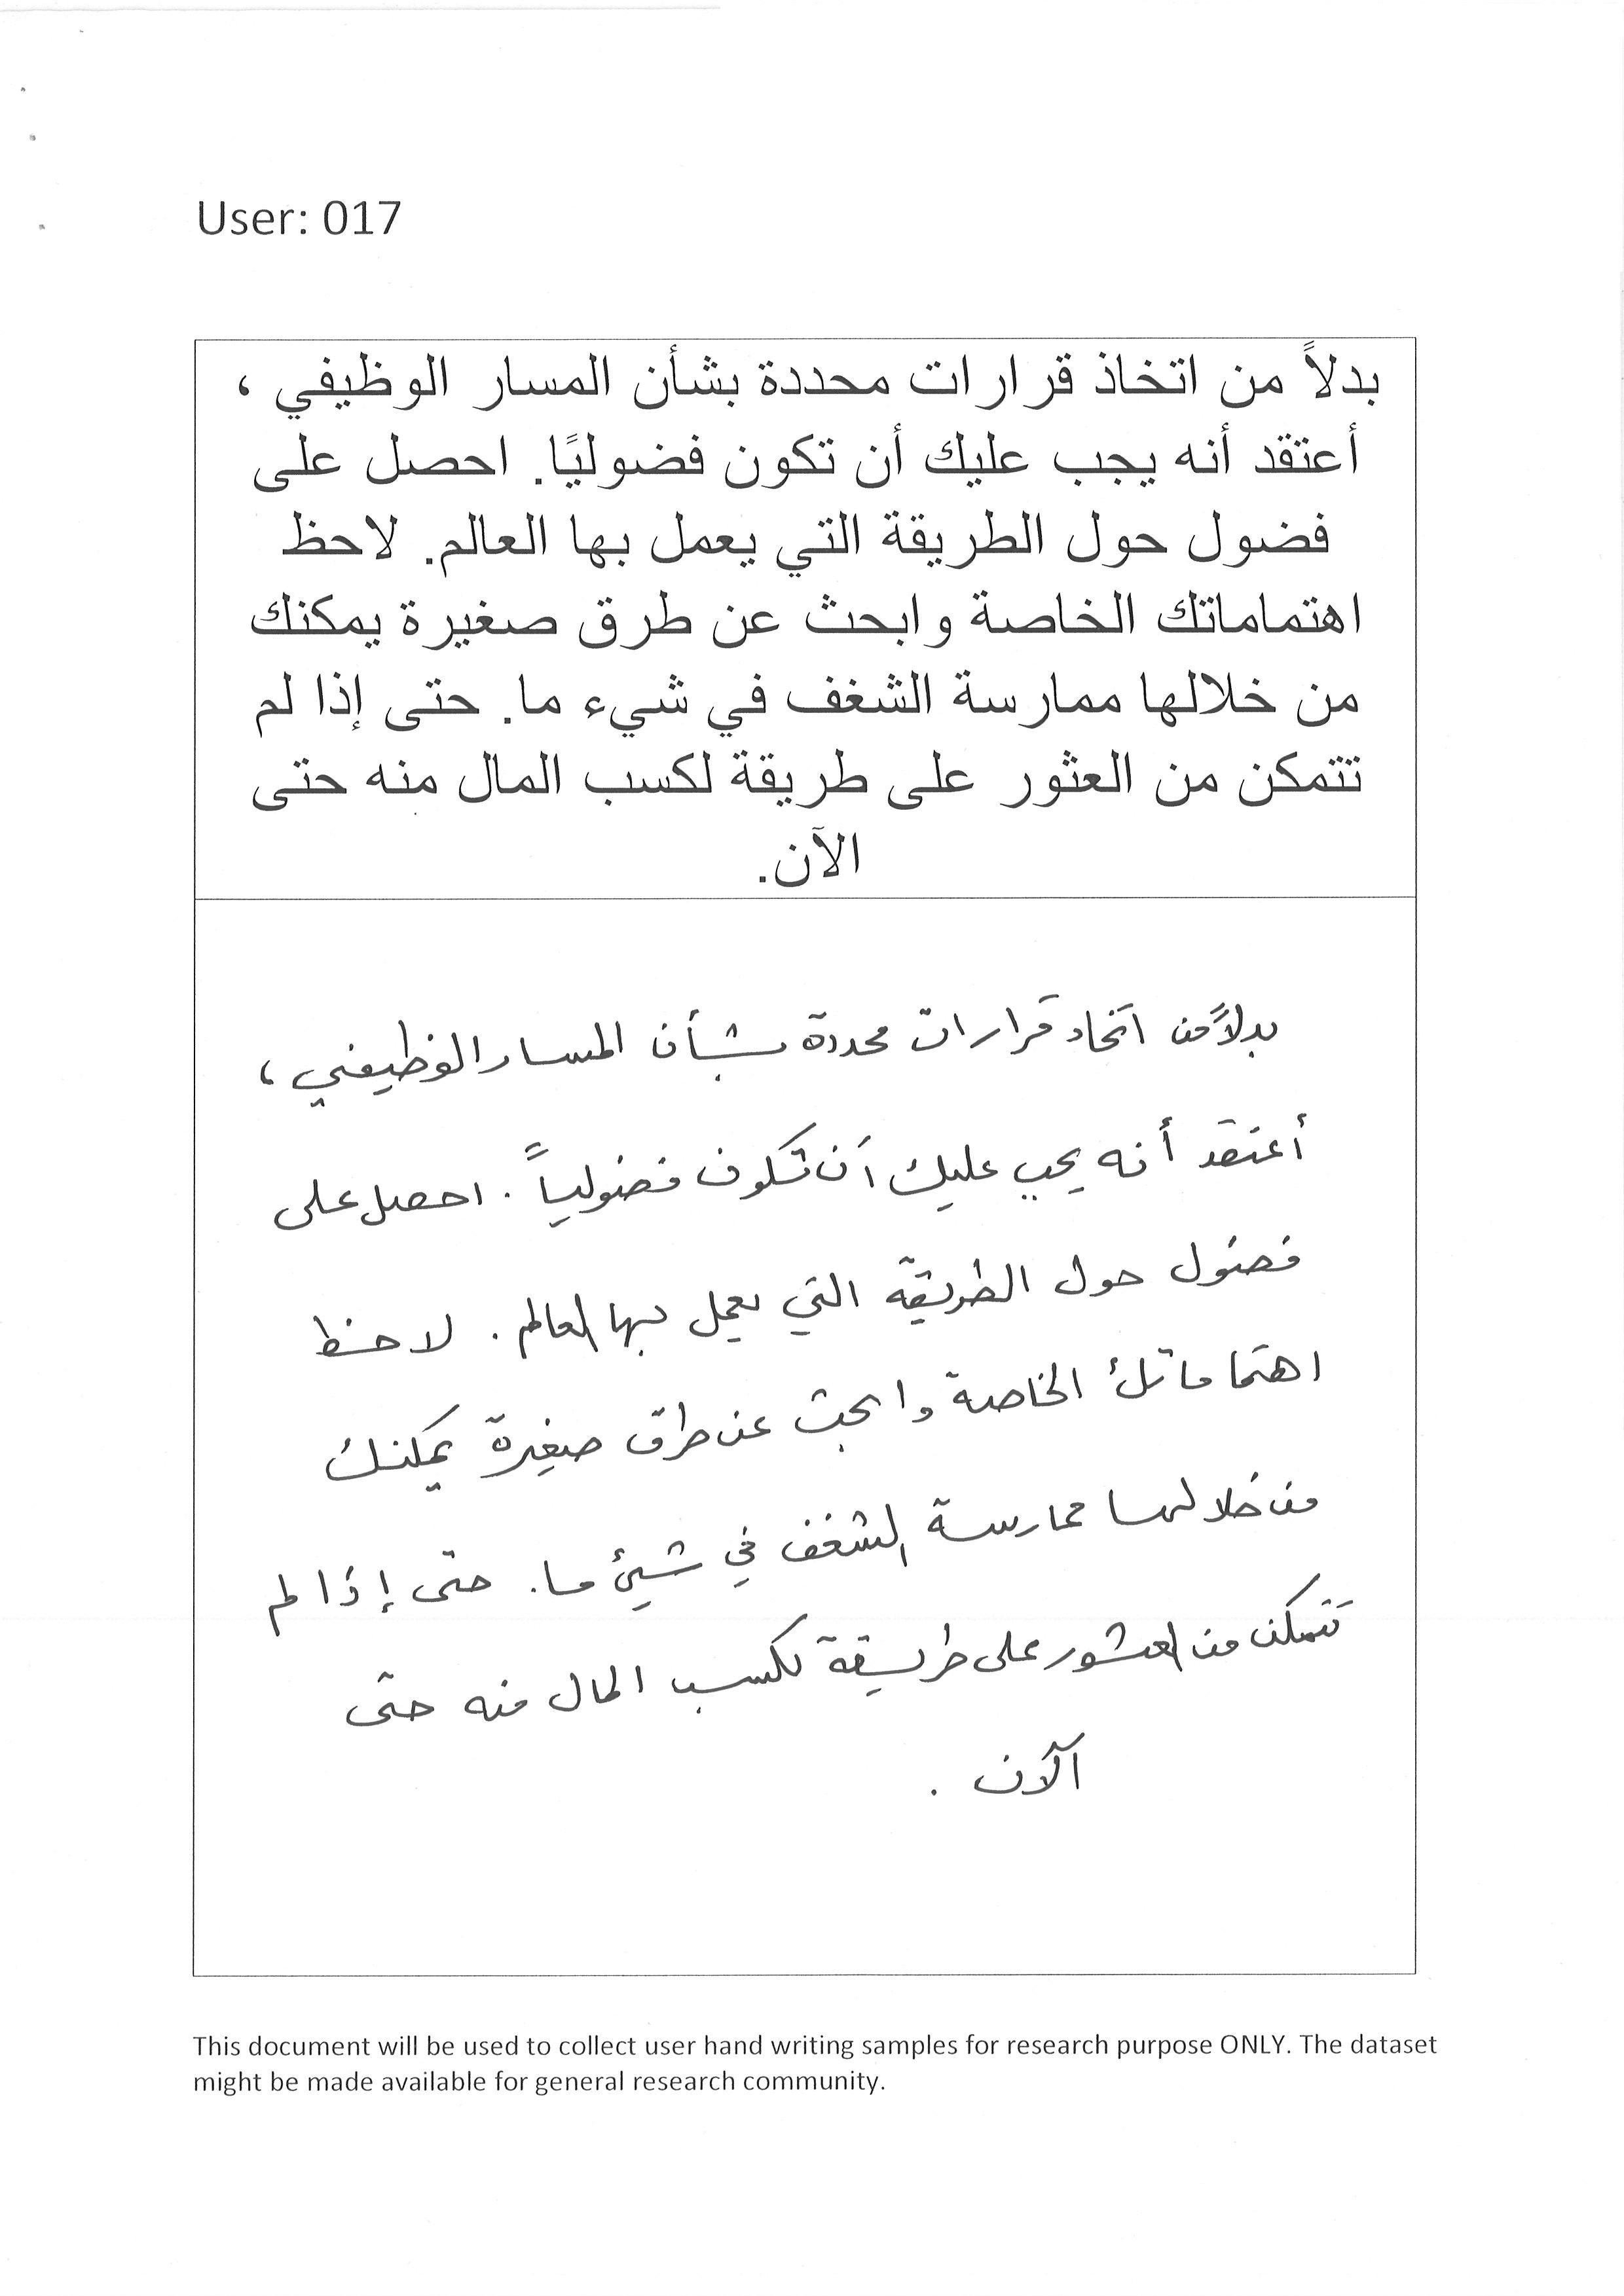 User: 017
بدلاً من اتخاذ قرارات محددة بشأن المسار الوظيفي ،
أعتقد أنه يجب عليك أن تكون فضوليًا. احصل على
فضول حول الطريقة التي يعمل بها العالم. لاحظ
اهتماماتك الخاصة وابحث عن طرق صغيرة يمكنك
من خلالها ممارسة الشغف في شيء ما. حتى إذا لم
تتمكن من العثور على طريقة لكسب المال منه حتى
الآن.
بدلاً من اتخاد قرارات محددة بشأن المسار الوظيفي ،
أعتقد أنه يجب عليك أن تكون فضولياً . احصل على
فضول حول الطريقة التي يعمل بها العالم . لاحظ
اهتماماتك الخاصة وابحث عن طرق صغيرة يمكنك
من خلالها ممارسة الشغف في شيئ ما . حتى إذا لم
تتمكن من العثور على طريقة لكسب المال منه حتى
الآن .
This document will be used to collect user hand writing samples for research purpose ONLY. The dataset
might be made available for general research community.